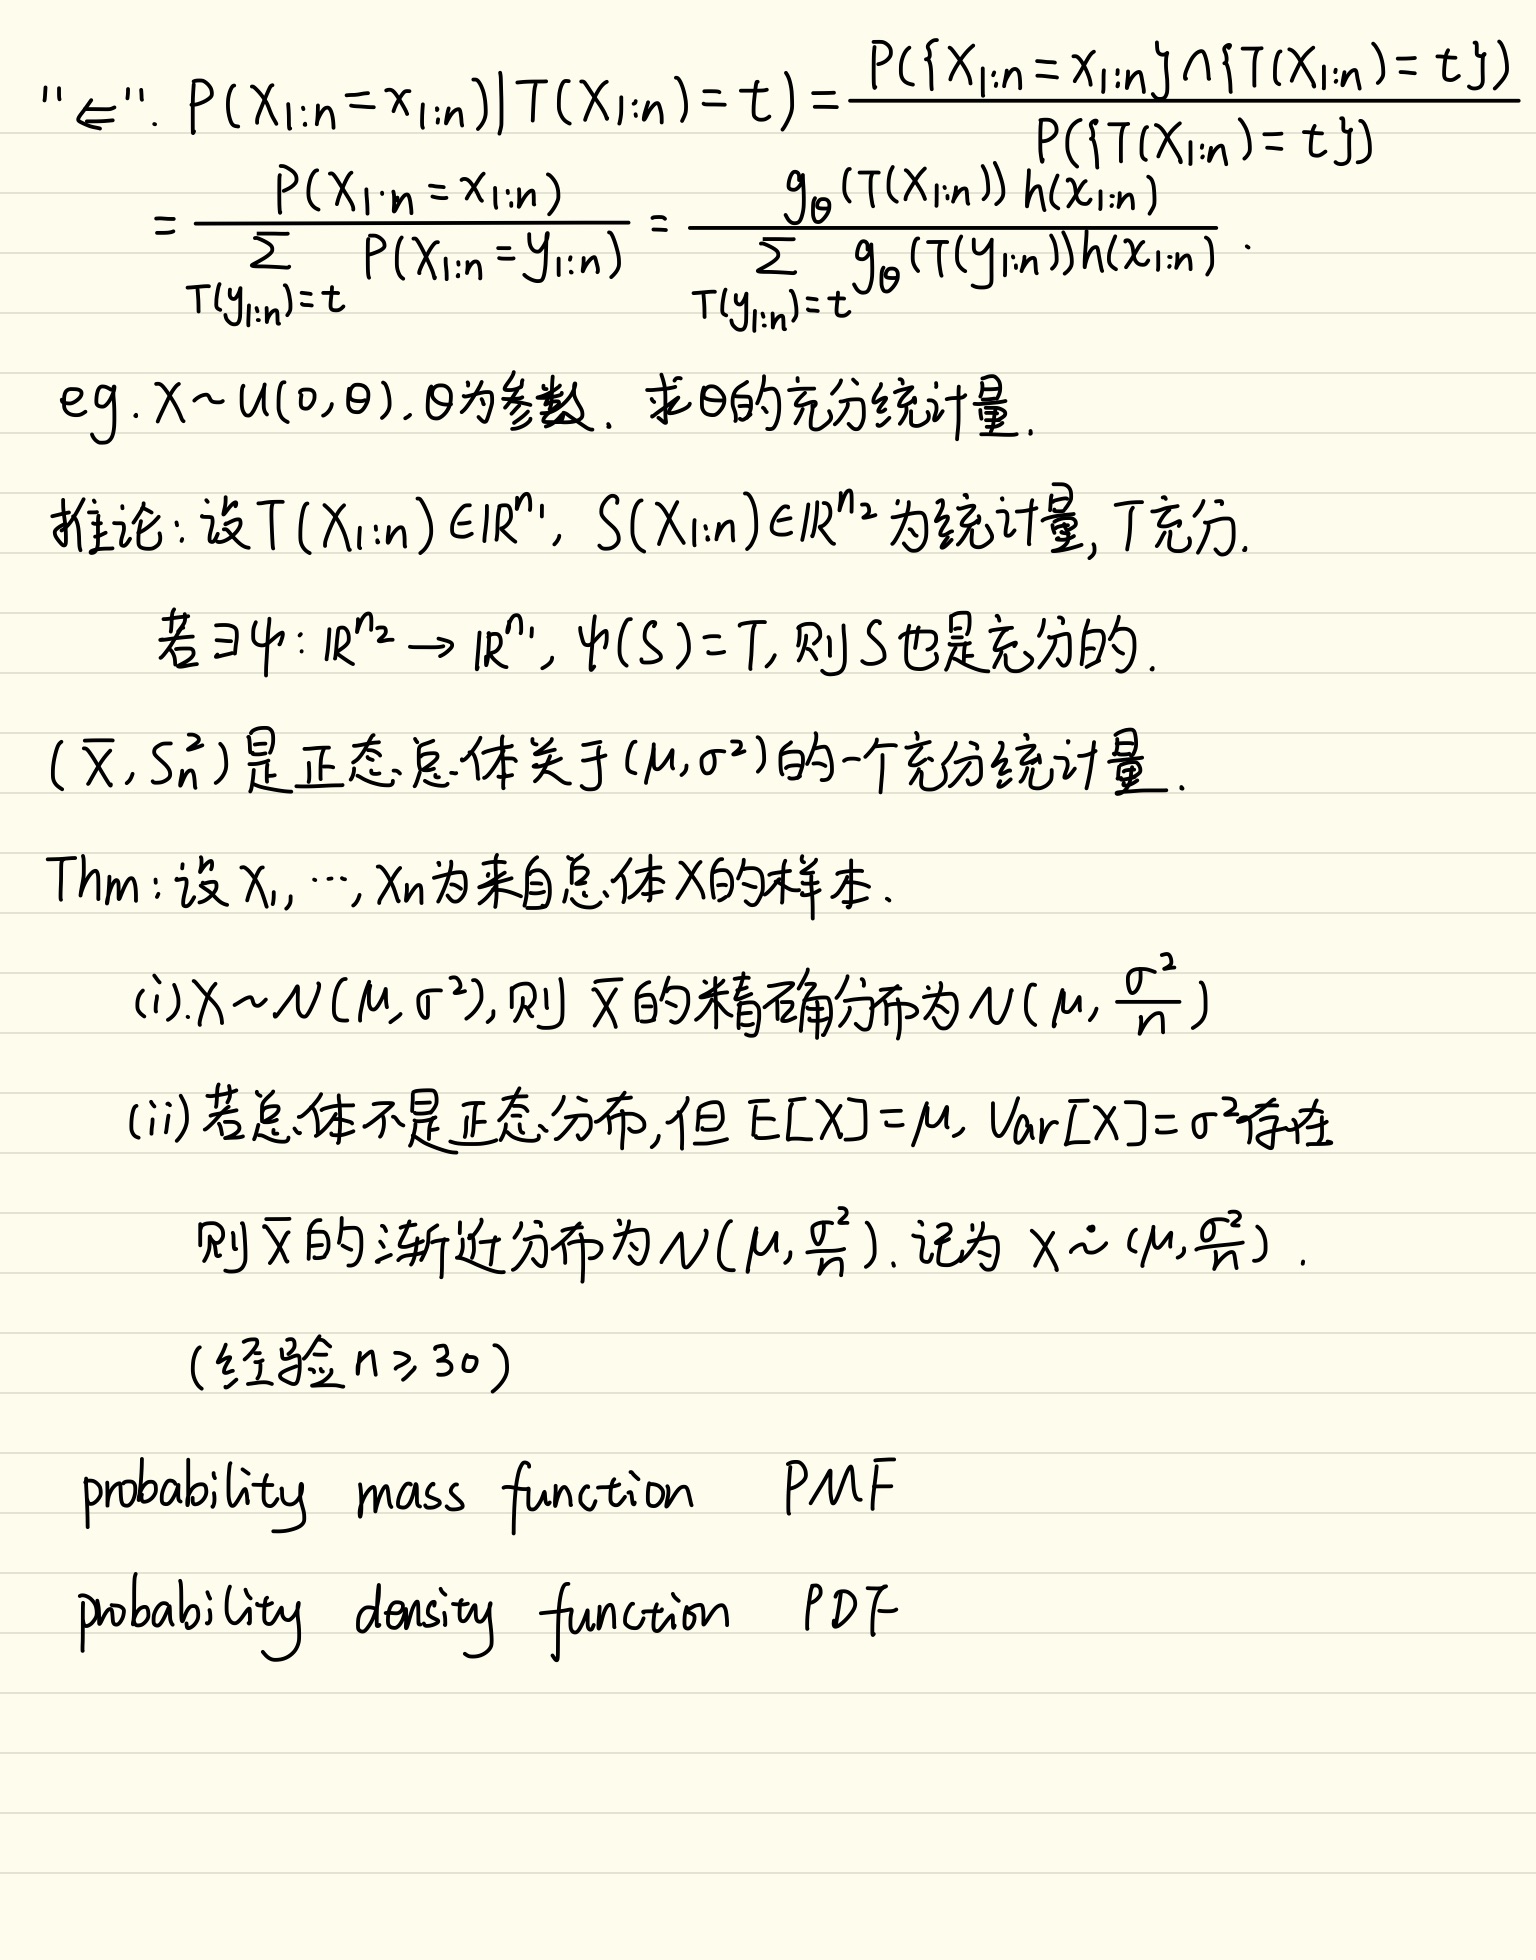 "⇐". P(X₁:ₙ = x₁:ₙ)|T(X₁:ₙ) = t) = P({X₁:ₙ = x₁:ₙ}∩{T(X₁:ₙ) = t}) / P({T(X₁:ₙ) = t})
= P(X₁:ₙ = x₁:ₙ) / ∑_{T(y₁:ₙ)=t} P(X₁:ₙ = y₁:ₙ) = g_θ(T(X₁:ₙ)) h(x₁:ₙ) / ∑_{T(y₁:ₙ)=t} g_θ(T(y₁:ₙ)) h(x₁:ₙ) .
eg. X ~ U(0,θ), θ为参数. 求θ的充分统计量.
推论: 设 T(X₁:ₙ) ∈ ℝ^{n₁}, S(X₁:ₙ) ∈ ℝ^{n₂} 为统计量, T充分.
若 ∃ψ: ℝ^{n₂} → ℝ^{n₁}, ψ(S) = T, 则 S 也是充分的.
(X̄, Sₙ²) 是正态总体关于(μ,σ²)的一个充分统计量.
Thm: 设 X₁, ⋯, Xₙ为来自总体X的样本.
(i). X ~ N(μ, σ²), 则 X̄ 的精确分布为 N(μ, σ²/n)
(ii) 若总体不是正态分布, 但 E[X] = μ, Var[X] = σ² 存在
则 X̄ 的渐近分布为 N(μ, σ²/n). 记为 X ∼̇ (μ, σ²/n) .
(经验 n ≥ 30)
probability mass function PMF
probability density function PDF